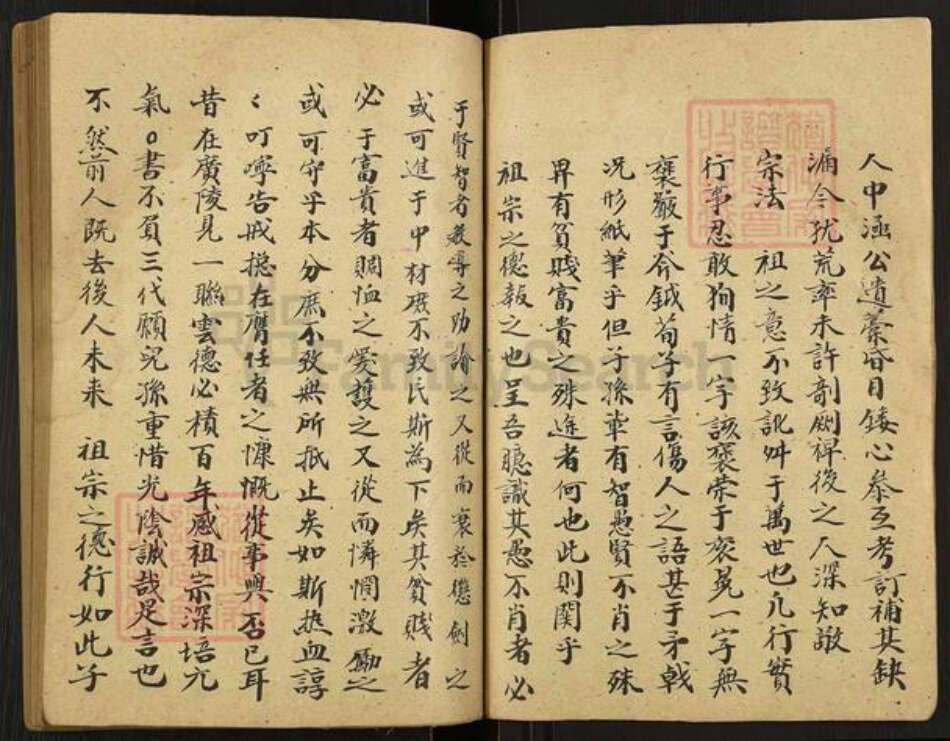 人中涵公遺藁昏目鏤心叅互考訂補其缺
漏今犹荒率未許剞劂裨後之人深知敬
宗法 祖之意不致訛舛于萬世也凡行實
行事忍敢狥情一字該褒荣于衮冕一字無
褒嚴于斧鉞荀子有言傷人之語甚于矛戟
况形紙筆乎但子孫軰有智愚賢不肖之殊
界有貧賤富貴之殊進者何也此則関乎
祖宗之德報之也呈吾聽識其愚不肖者必
于賢智者教導之劝諭之又從而衰於懲劍之
或可進于中材庶不致民斯為下矣其貧賤者
必于富貴者賙恤之爱護之又從而憐憫激勵之
或可守乎本分庶不致無所抵止矣如斯热血諄
〻叮嚀告戒揔在膺任者之慷慨從事與否已耳
昔在廣陵見一聯雲德必積百年感祖宗深培元
氣〇書不負三代願児孫重惜光陰誠哉足言也
不然前人既去後人未来 祖宗之德行如此子
FamilySearch